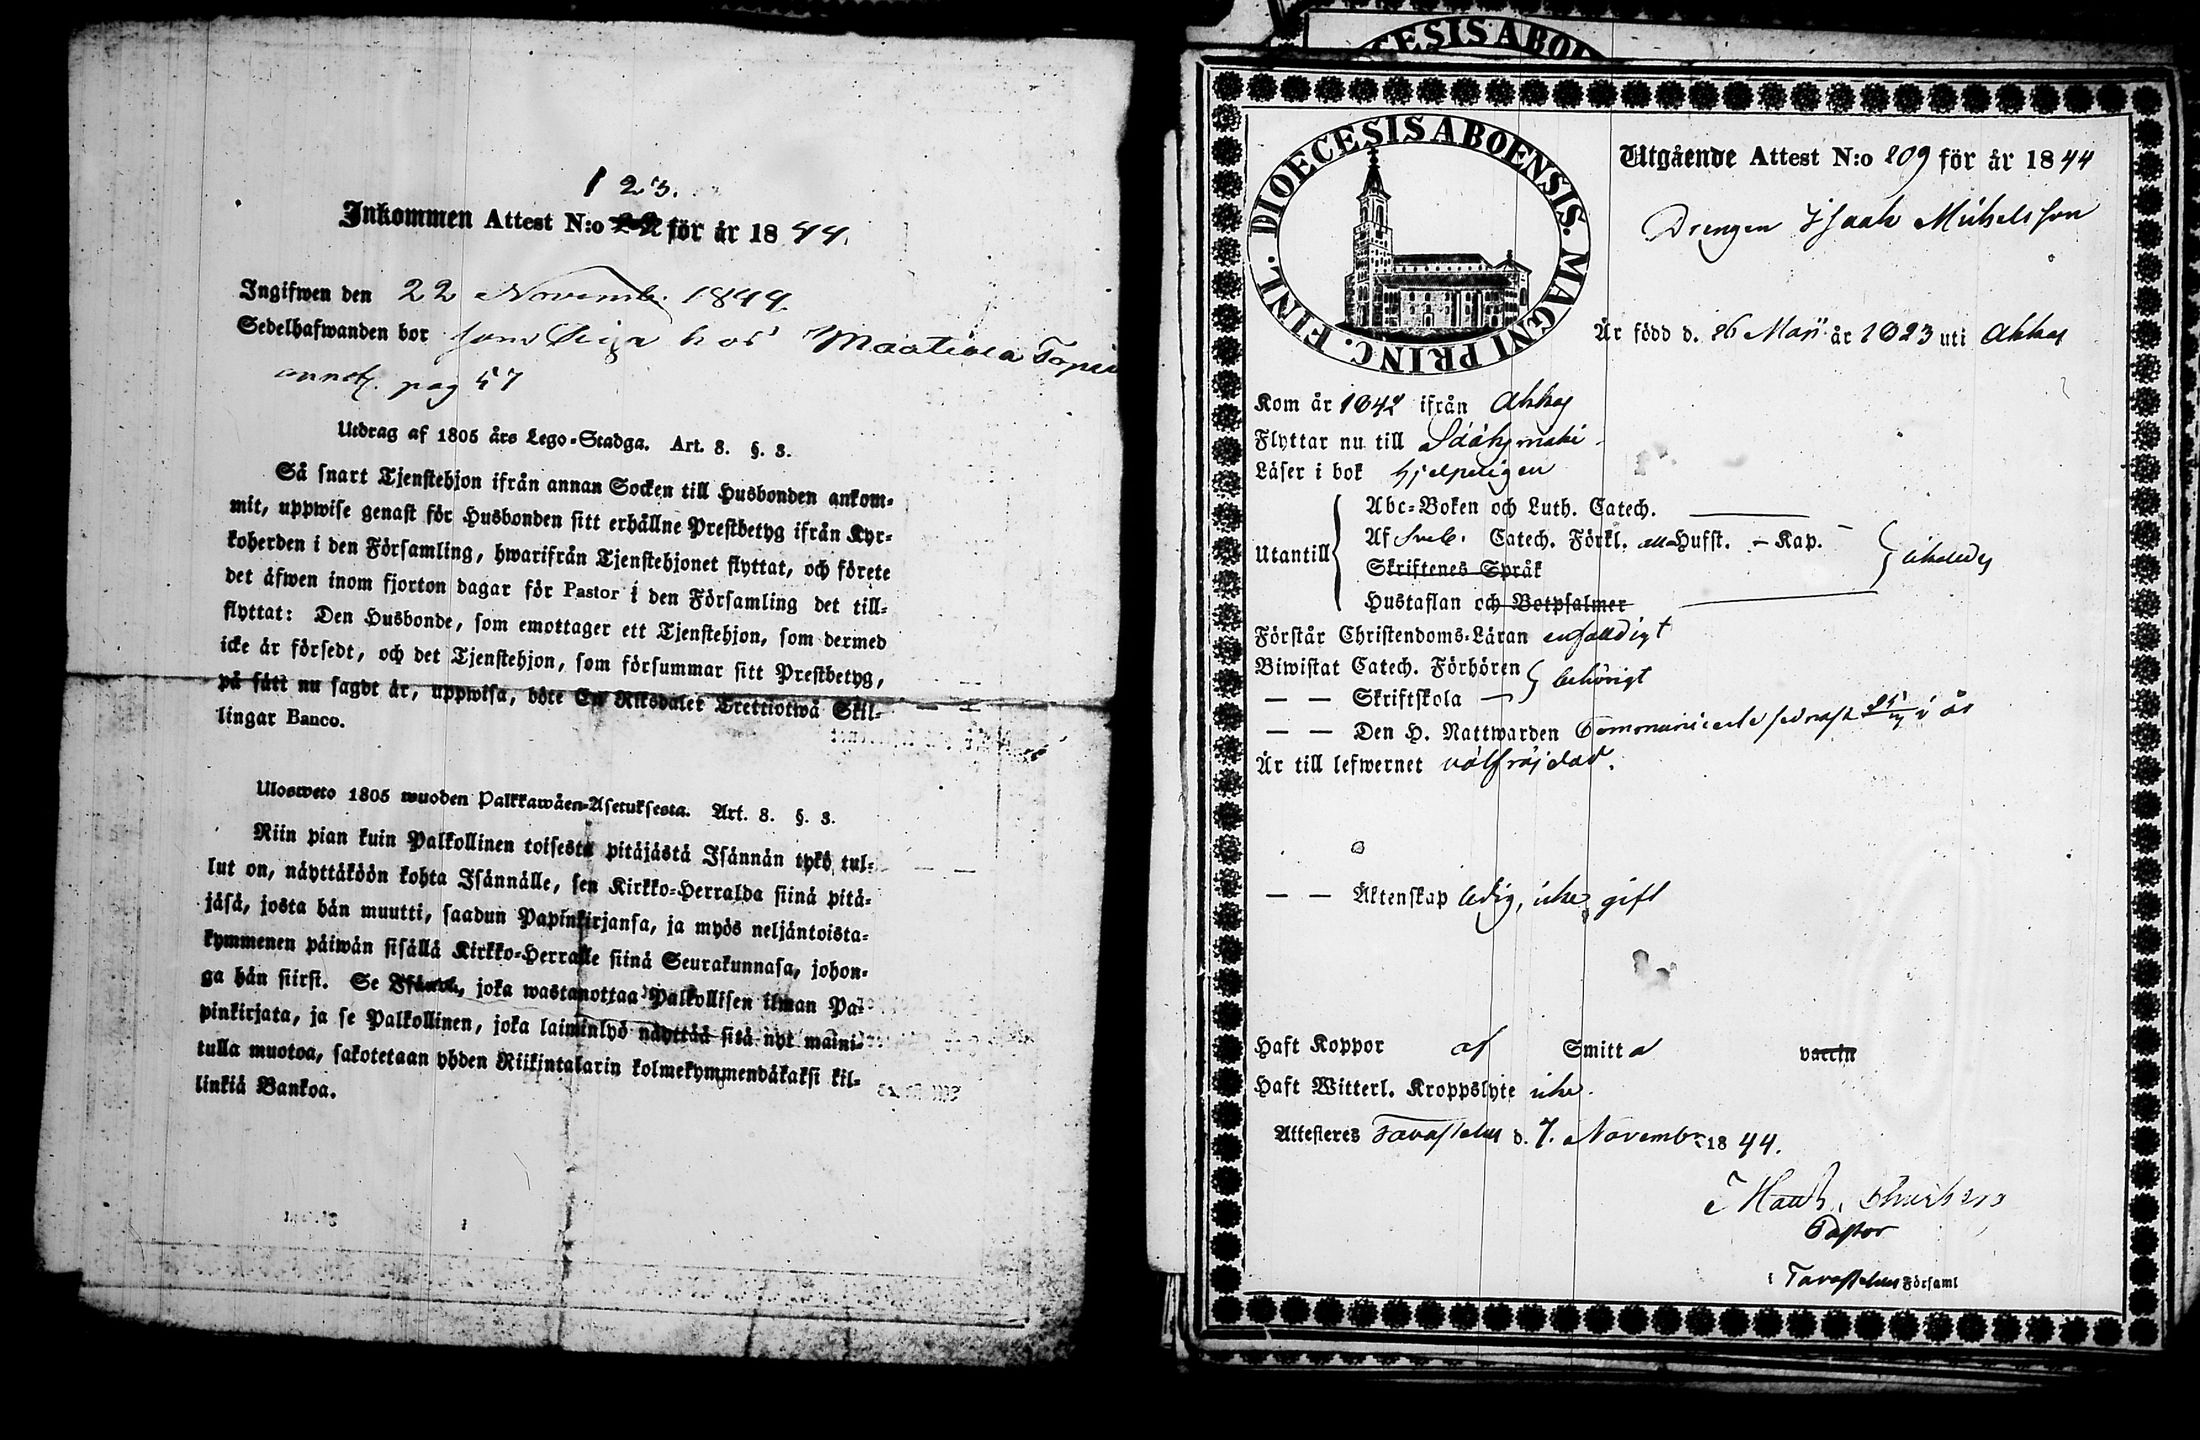 1 23.
Inkommen Attest N:o för år 1844.
Ingifwen den 22 Novemb. 1844
Sedelhafwanden bor som Piga hos Maatiala
pag 57
Utdrag af 1805 års Lego-Stadga. Art. 8. §. 3.
Så snart Tjenstehjon ifrån annan Socken till Husbonden ankom-
mit, uppwise genast för Husbonden sitt erhållne Prestbetyg ifrån Kyr-
koherden i den Församling, hwarifrån Tjenstehjonet flyttat, och förete
det äfwen inom fjorton dagar för Pastor i den Församling det till-
flyttat: Den Husbonde, som emottager ett Tjenstehjon, som dermed
icke är försedt, och det Tjenstehjon, som försummar sitt Prestbetyg,
på sätt nu sagdt är, uppwisa, böte En Riksdaler Trettiotwå Skil-
lingar Banco.
Ulosweto 1805 wuoden Palkkawäen-Asetuksesta. Art. 8. §. 3.
Niin pian kuin Palkollinen toisesta pitäjästä Isännän tykö tul-
lut on, näyttäköön kohta Isännälle, sen Kirkko-Herralda siinä pitä-
jäsä, josta hän muutti, saadun Papinkirjansa, ja myös neljäntoista-
kymmenen päiwän sisällä Kirkko-Herralle siinä Seurakunnasa, johon-
ga hän siirst. Se Isäntä, joka wastanottaa Palkollisen ilman Pa-
pinkirjata, ja se Palkollinen, joka laiminlyö näyttää sitä nyt maini-
tulla muotoa, sakotetaan yhden Riikintalarin kolmekymmendäkaksi kil-
linkiä Bankoa.
DIOECESIS ABOENSIS. MAGNI PRINC. FINL.
Utgående Attest N:o 109 för år 1844
Drengen Isaak Michelsson
Är född d. 26 Maji år 1823 uti Akkas
Kom år 1842 ifrån Akkas
Flyttar nu till Sääksmäki
Läser i bok hjelpeligen
Abc-Boken och Luth. Catech.
Utantill Af Sveb. Catech. Förkl. alla Hufst. – Kap. – likaledes
Skriftenes Språk
Hustaflan och Botpsalmer
Förstår Christendoms-Läran enfaldigt
Biwistat Catech. Förhören behörigt
— — Skriftskola —
— — Den H. Nattwarden Communicerte sednast i år
Är till lefwernet välfräjdad.
— — Äktenskap ledig, icke gift
Haft Koppor af Smitta vaccin
Haft Witterl. Kroppslyte icke.
Attesteres Tavastehus d. 7. Novembr 1844.
Pastor
i Tavastehus Församl